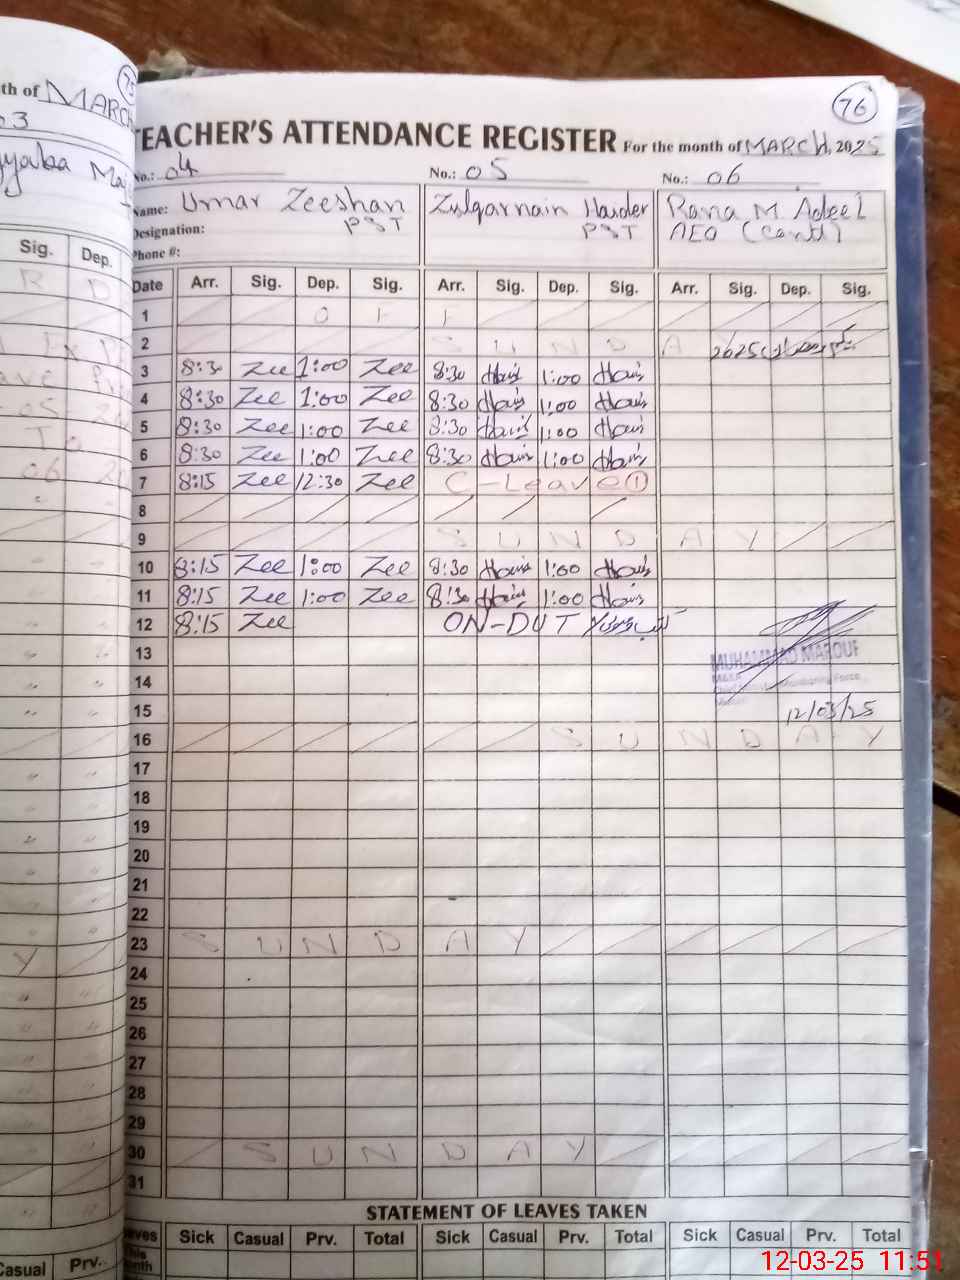 th of MARCH
75
76
TEACHER'S ATTENDANCE REGISTER For the month of MARCH, 2025
No.: 04 No.: 05 No.: 06
Name: Umar Zeeshan Zulqarnain Haider Rana M. Adeel
Designation: PST PST AEO (Cantt)
Phone #:
Sig. Dep.
Date Arr. Sig. Dep. Sig. Arr. Sig. Dep. Sig. Arr. Sig. Dep. Sig.
1 O F F
2 S U N D A
3 8:30 Zee 1:00 Zee 8:30 Hais 1:00 Hais
4 8:30 Zee 1:00 Zee 8:30 Hais 1:00 Hais
5 8:30 Zee 1:00 Zee 8:30 Hais 1:00 Hais
6 8:30 Zee 1:00 Zee 8:30 Hais 1:00 Hais
7 8:15 Zee 12:30 Zee C-Leave ①
8
9 S U N D A Y
10 8:15 Zee 1:00 Zee 8:30 Hais 1:00 Hais
11 8:15 Zee 1:00 Zee 8:30 Hais 1:00 Hais
12 8:15 Zee ON-DUT Y
13 MUHAMMAD MAROUF
14
15 12/03/25
16 S U N D A Y
17
18
19
20
21
22
23 S U N D A Y
24
25
26
27
28
29
30 S U N D A Y
31
STATEMENT OF LEAVES TAKEN
Sick Casual Prv. Total Sick Casual Prv. Total Sick Casual Prv. Total
Casual Prv.
12-03-25 11:51